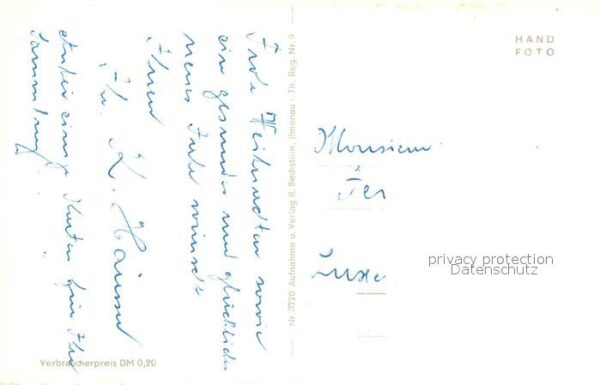 Frohe Weihnachten sowie
ein gesundes und glückliches
neues Jahr wünscht
Ihnen
Ihr K. Häusser
Anbei einige Karten für Ihre
Sammlung.
Nr. 3720 Aufnahme u. Verlag R. Bechstein, Jlmenau i. Th. Reg. Nr. 9
HAND
FOTO
Monsieur
Fer
Luxe
privacy protection
Datenschutz
Verbraucherpreis DM 0,20